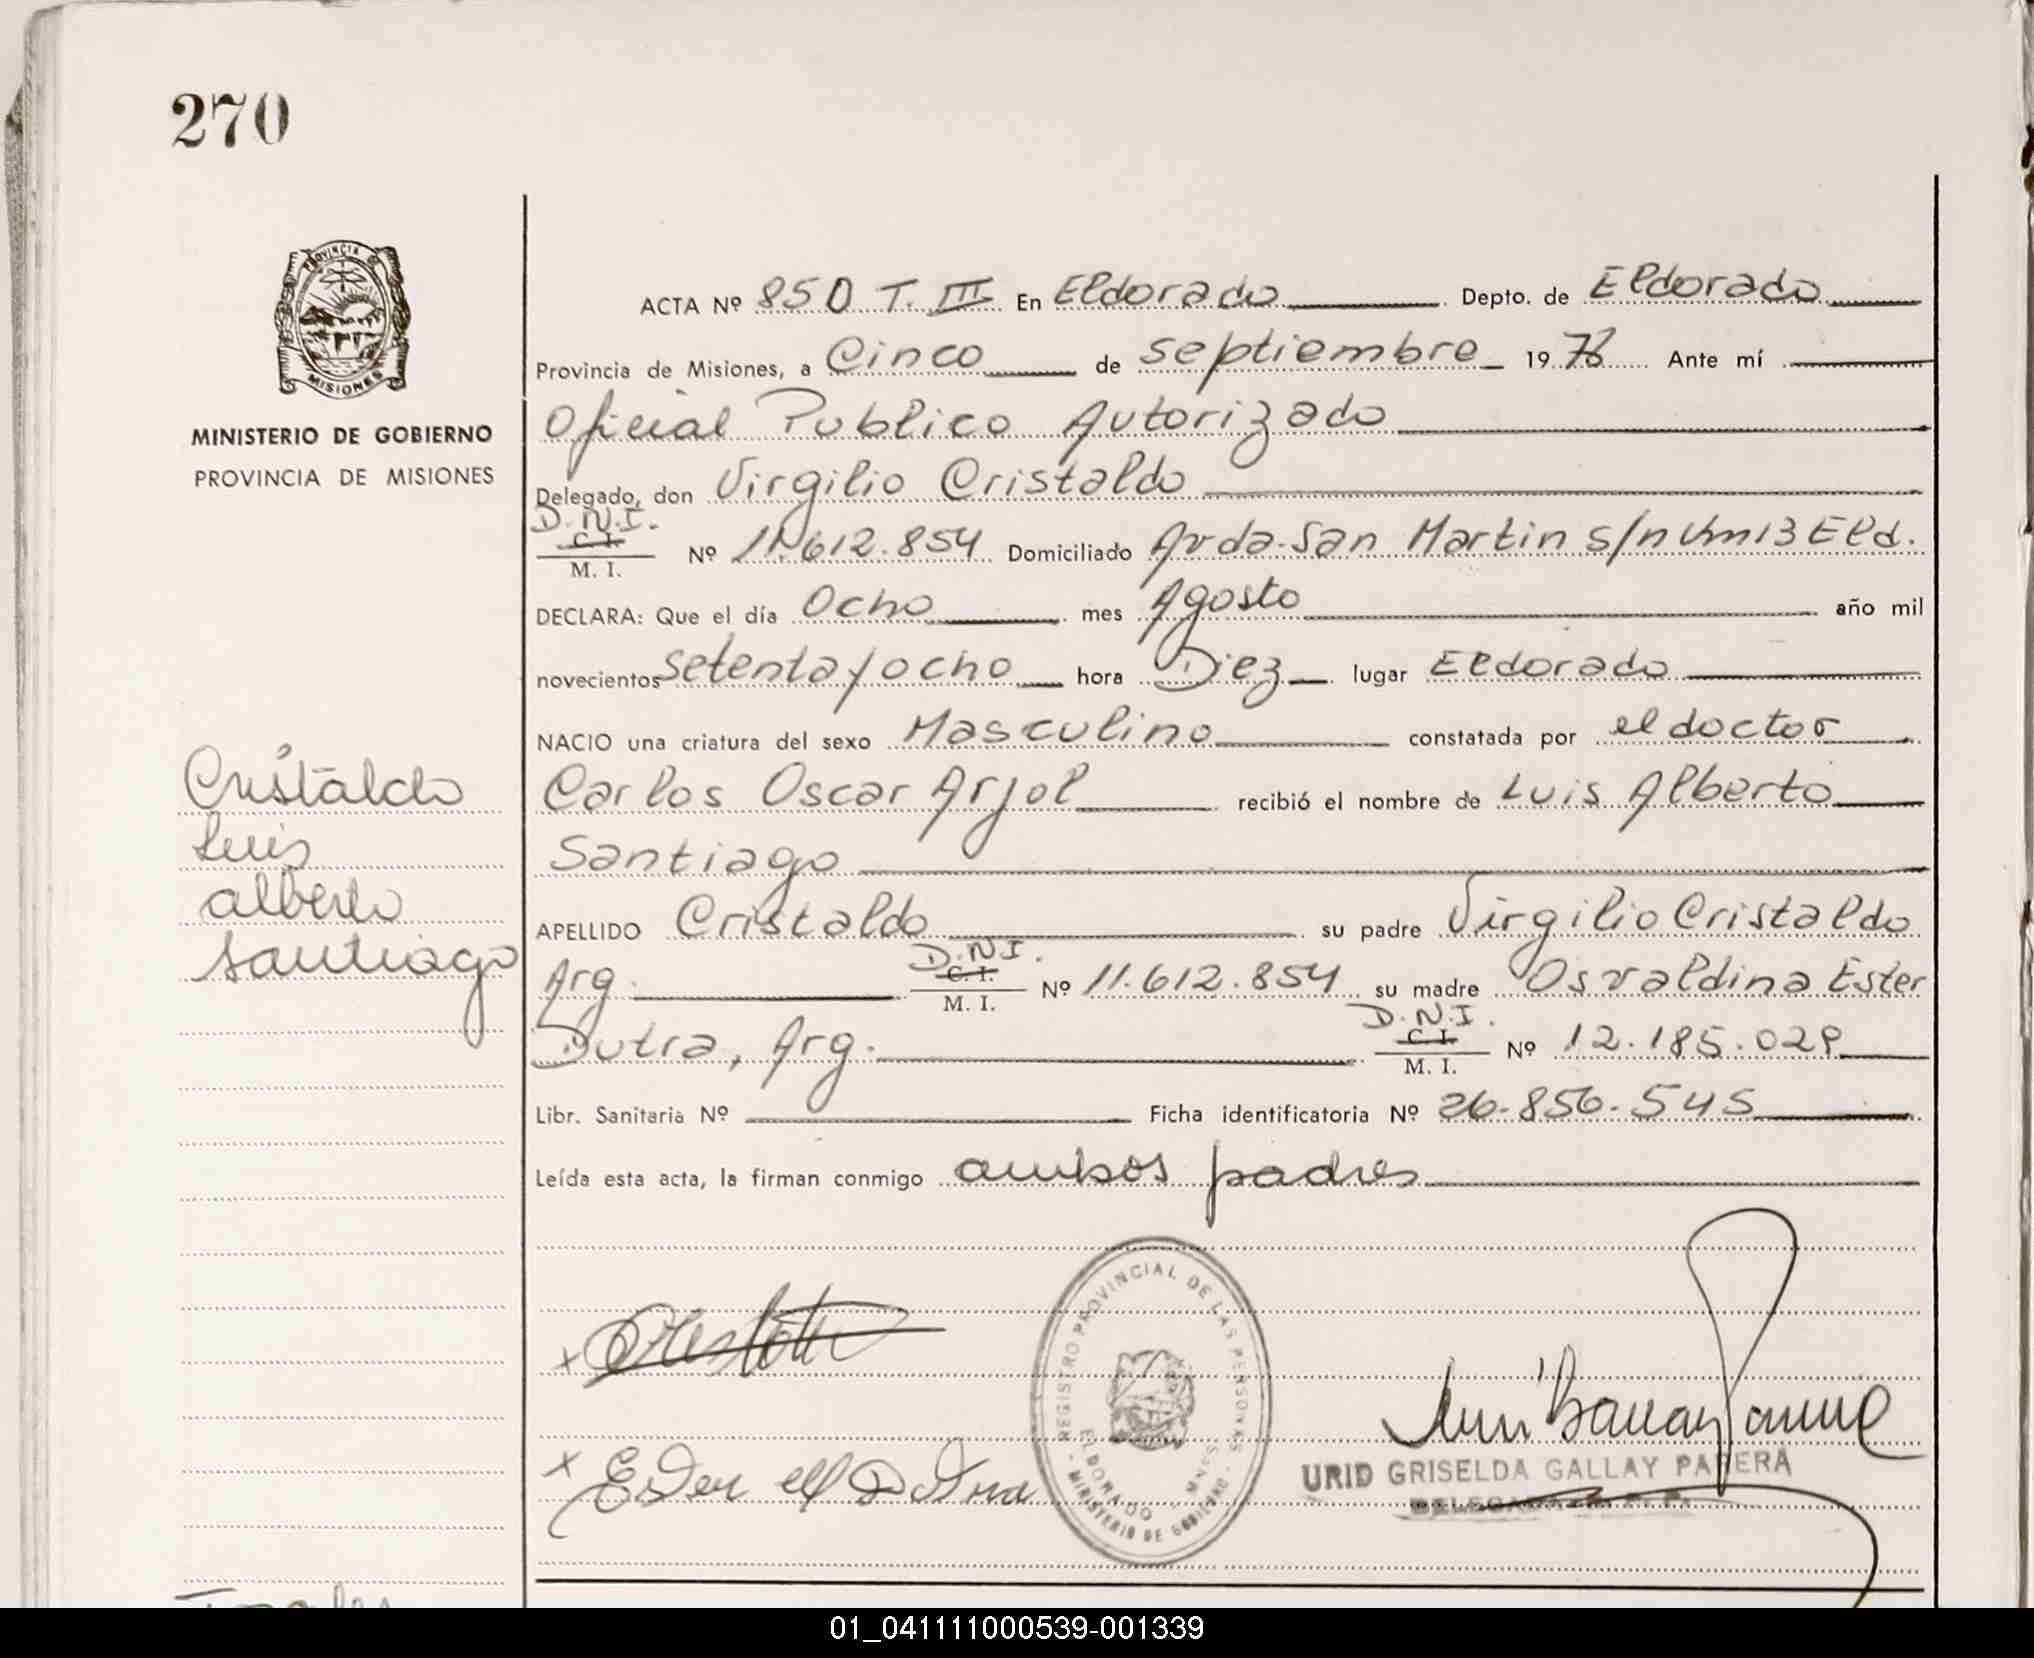 270
PROVINCIA DE
MISIONES
MINISTERIO DE GOBIERNO
PROVINCIA DE MISIONES
ACTA Nº 850 T. III En Eldorado Depto. de Eldorado
Provincia de Misiones, a Cinco de septiembre 1978 Ante mí
Oficial Publico Autorizado
Delegado, don Virgilio Cristaldo
D.N.I.
C. I.
M. I. Nº 11.612.854 Domiciliado Avda. San Martin s/n km 13 Eld.
DECLARA: Que el día Ocho mes Agosto año mil
novecientos setenta y ocho hora Diez lugar Eldorado
NACIO una criatura del sexo Masculino constatada por el doctor
Carlos Oscar Arjol recibió el nombre de Luis Alberto
Santiago
APELLIDO Cristaldo su padre Virgilio Cristaldo
Arg. D.N.I. C. I. M. I. Nº 11.612.854 su madre Osvaldina Ester
Dutra, Arg. D.N.I. C. I. M. I. Nº 12.185.029
Libr. Sanitaria Nº Ficha identificatoria Nº 26.856.545
Leída esta acta, la firman conmigo ambos padres
Cristaldo
Luis
Alberto
Santiago
REGISTRO PROVINCIAL DE LAS PERSONAS
ELDORADO - MNES
MINISTERIO DE GOBIERNO
URID GRISELDA GALLAY PARERA
01_041111000539-001339